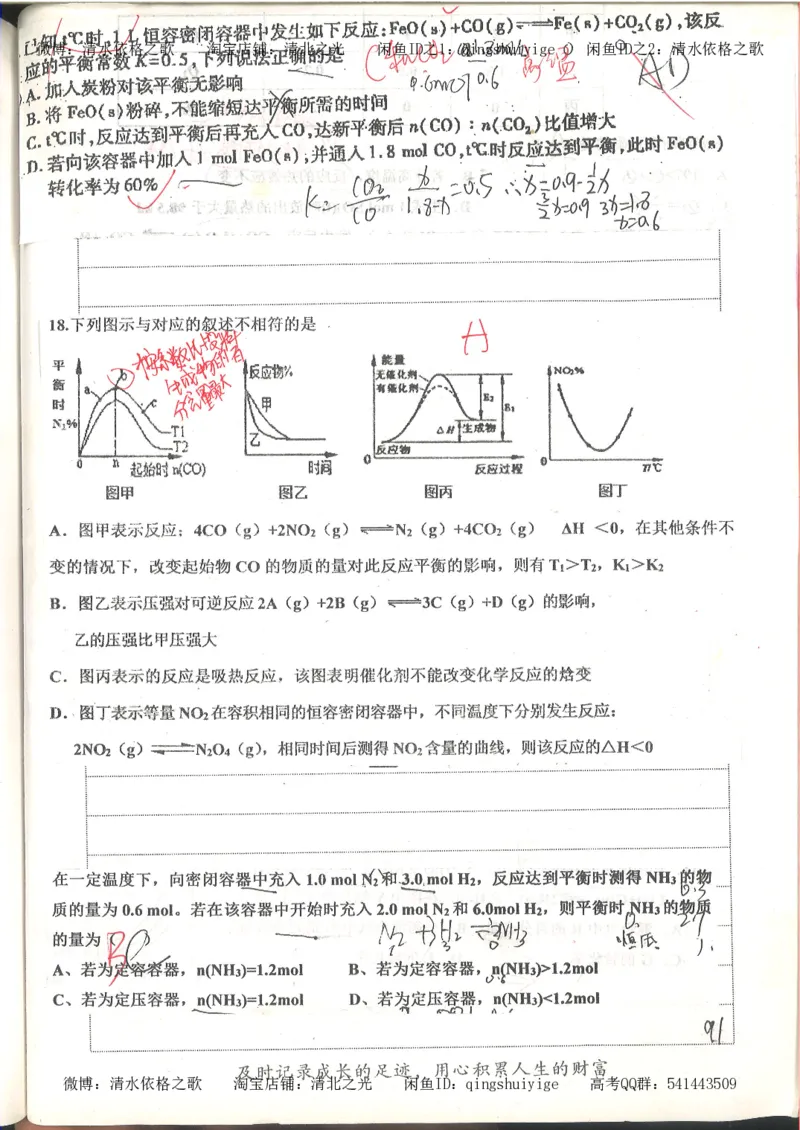 知t℃时,1 L恒容密闭容器中发生如下反应:FeO(s)+CO(g)⇌Fe(s)+CO₂(g),该反
微博：清水依格之歌 淘宝店铺：清北之光 闲鱼ID之1：qingshuiyige 闲鱼ID之2：清水依格之歌
应的平衡常数K=0.5,下列说法正确的是
A.加入炭粉对该平衡无影响
B.将FeO(s)粉碎,不能缩短达平衡所需的时间
C.t℃时,反应达到平衡后再充入CO,达新平衡后n(CO)：n(CO₂)比值增大
D.若向该容器中加入1 mol FeO(s),并通入1.8 mol CO,t℃时反应达到平衡,此时FeO(s)
转化率为60%
AD
0.6
恒温
K= CO₂/CO x/1.8-x =0.5 ∴x=0.9-½x
3/2x=0.9 3x=1.8
x=0.6
18.下列图示与对应的叙述不相符的是
A
平衡时N₂% a b c T1 T2 0 n 起始时n(CO)
反应物% 甲 乙 时间
能量 无催化剂 有催化剂 E2 E1 ΔH 生成物 反应物 0 反应过程
NO₂% 0 T℃
图甲 图乙 图丙 图丁
A．图甲表示反应：4CO（g）+2NO₂（g）⇌N₂（g）+4CO₂（g） ΔH ＜0，在其他条件不
变的情况下，改变起始物 CO 的物质的量对此反应平衡的影响，则有 T₁＞T₂，K₁＞K₂
B．图乙表示压强对可逆反应 2A（g）+2B（g）⇌3C（g）+D（g）的影响，
乙的压强比甲压强大
C．图丙表示的反应是吸热反应，该图表明催化剂不能改变化学反应的焓变
D．图丁表示等量 NO₂ 在容积相同的恒容密闭容器中，不同温度下分别发生反应：
2NO₂（g）⇌N₂O₄（g），相同时间后测得 NO₂ 含量的曲线，则该反应的△H＜0
在一定温度下，向密闭容器中充入 1.0 mol N₂ 和 3.0 mol H₂，反应达到平衡时测得 NH₃ 的物
质的量为 0.6 mol。若在该容器中开始时充入 2.0 mol N₂ 和 6.0mol H₂，则平衡时 NH₃ 的物质
的量为
B
N₂ +3H₂ ⇌2NH₃
恒压
A、若为定容容器，n(NH₃)=1.2mol B、若为定容容器，n(NH₃)>1.2mol
C、若为定压容器，n(NH₃)=1.2mol D、若为定压容器，n(NH₃)<1.2mol
91
及时记录成长的足迹，用心积累人生的财富
微博：清水依格之歌 淘宝店铺：清北之光 闲鱼ID：qingshuiyige 高考QQ群：541443509